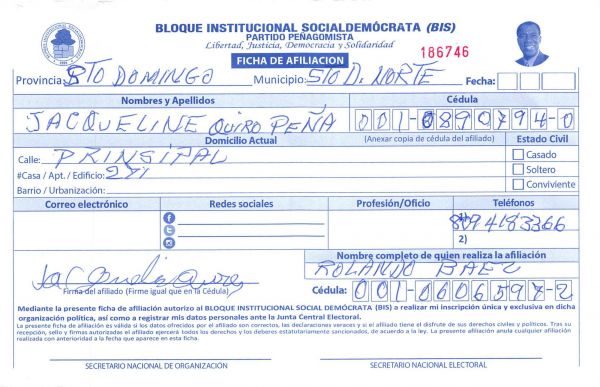 BLOQUE INSTITUCIONAL SOCIALDEMÓCRATA (BIS)
PARTIDO PEÑAGOMISTA
Libertad, Justicia, Democracia y Solidaridad
FICHA DE AFILIACION
186746
Provincia: STO DOMINGO Municipio: STO D. NORTE Fecha:
Nombres y Apellidos Cédula
JACQUELINE QUIRO PEÑA 001-0890794-0
Domicilio Actual (Anexar copia de cédula del afiliado) Estado Civil
Calle: PRINSIPAL Casado
#Casa / Apt. / Edificio: Soltero
Barrio / Urbanización: Conviviente
Correo electrónico Redes sociales Profesión/Oficio Teléfonos
1) 8094183366
2)
Nombre completo de quien realiza la afiliación
ROLANDO BAEZ
Firma del afiliado (Firme igual que en la Cédula) Cédula: 001-0606597-2
Mediante la presente ficha de afiliación autorizo al BLOQUE INSTITUCIONAL SOCIAL DEMÓCRATA (BIS) a realizar mi inscripción única y exclusiva en dicha
organización política, así como a registrar mis datos personales ante la Junta Central Electoral.
La presente ficha de afiliación es válida si los datos ofrecidos por el afiliado son correctos, las declaraciones veraces y si el afiliado tiene el disfrute de sus derechos civiles y políticos. Tras su
recepción, sello y firmas autorizadas el afiliado ejercerá todos los derechos y los deberes estatutariamente sancionados, de acuerdo a la ley. La presente afiliación anula cualquier afiliación
realizada con anterioridad a la fecha que aparece en esta ficha.
SECRETARIO NACIONAL DE ORGANIZACIÓN SECRETARIO NACIONAL ELECTORAL